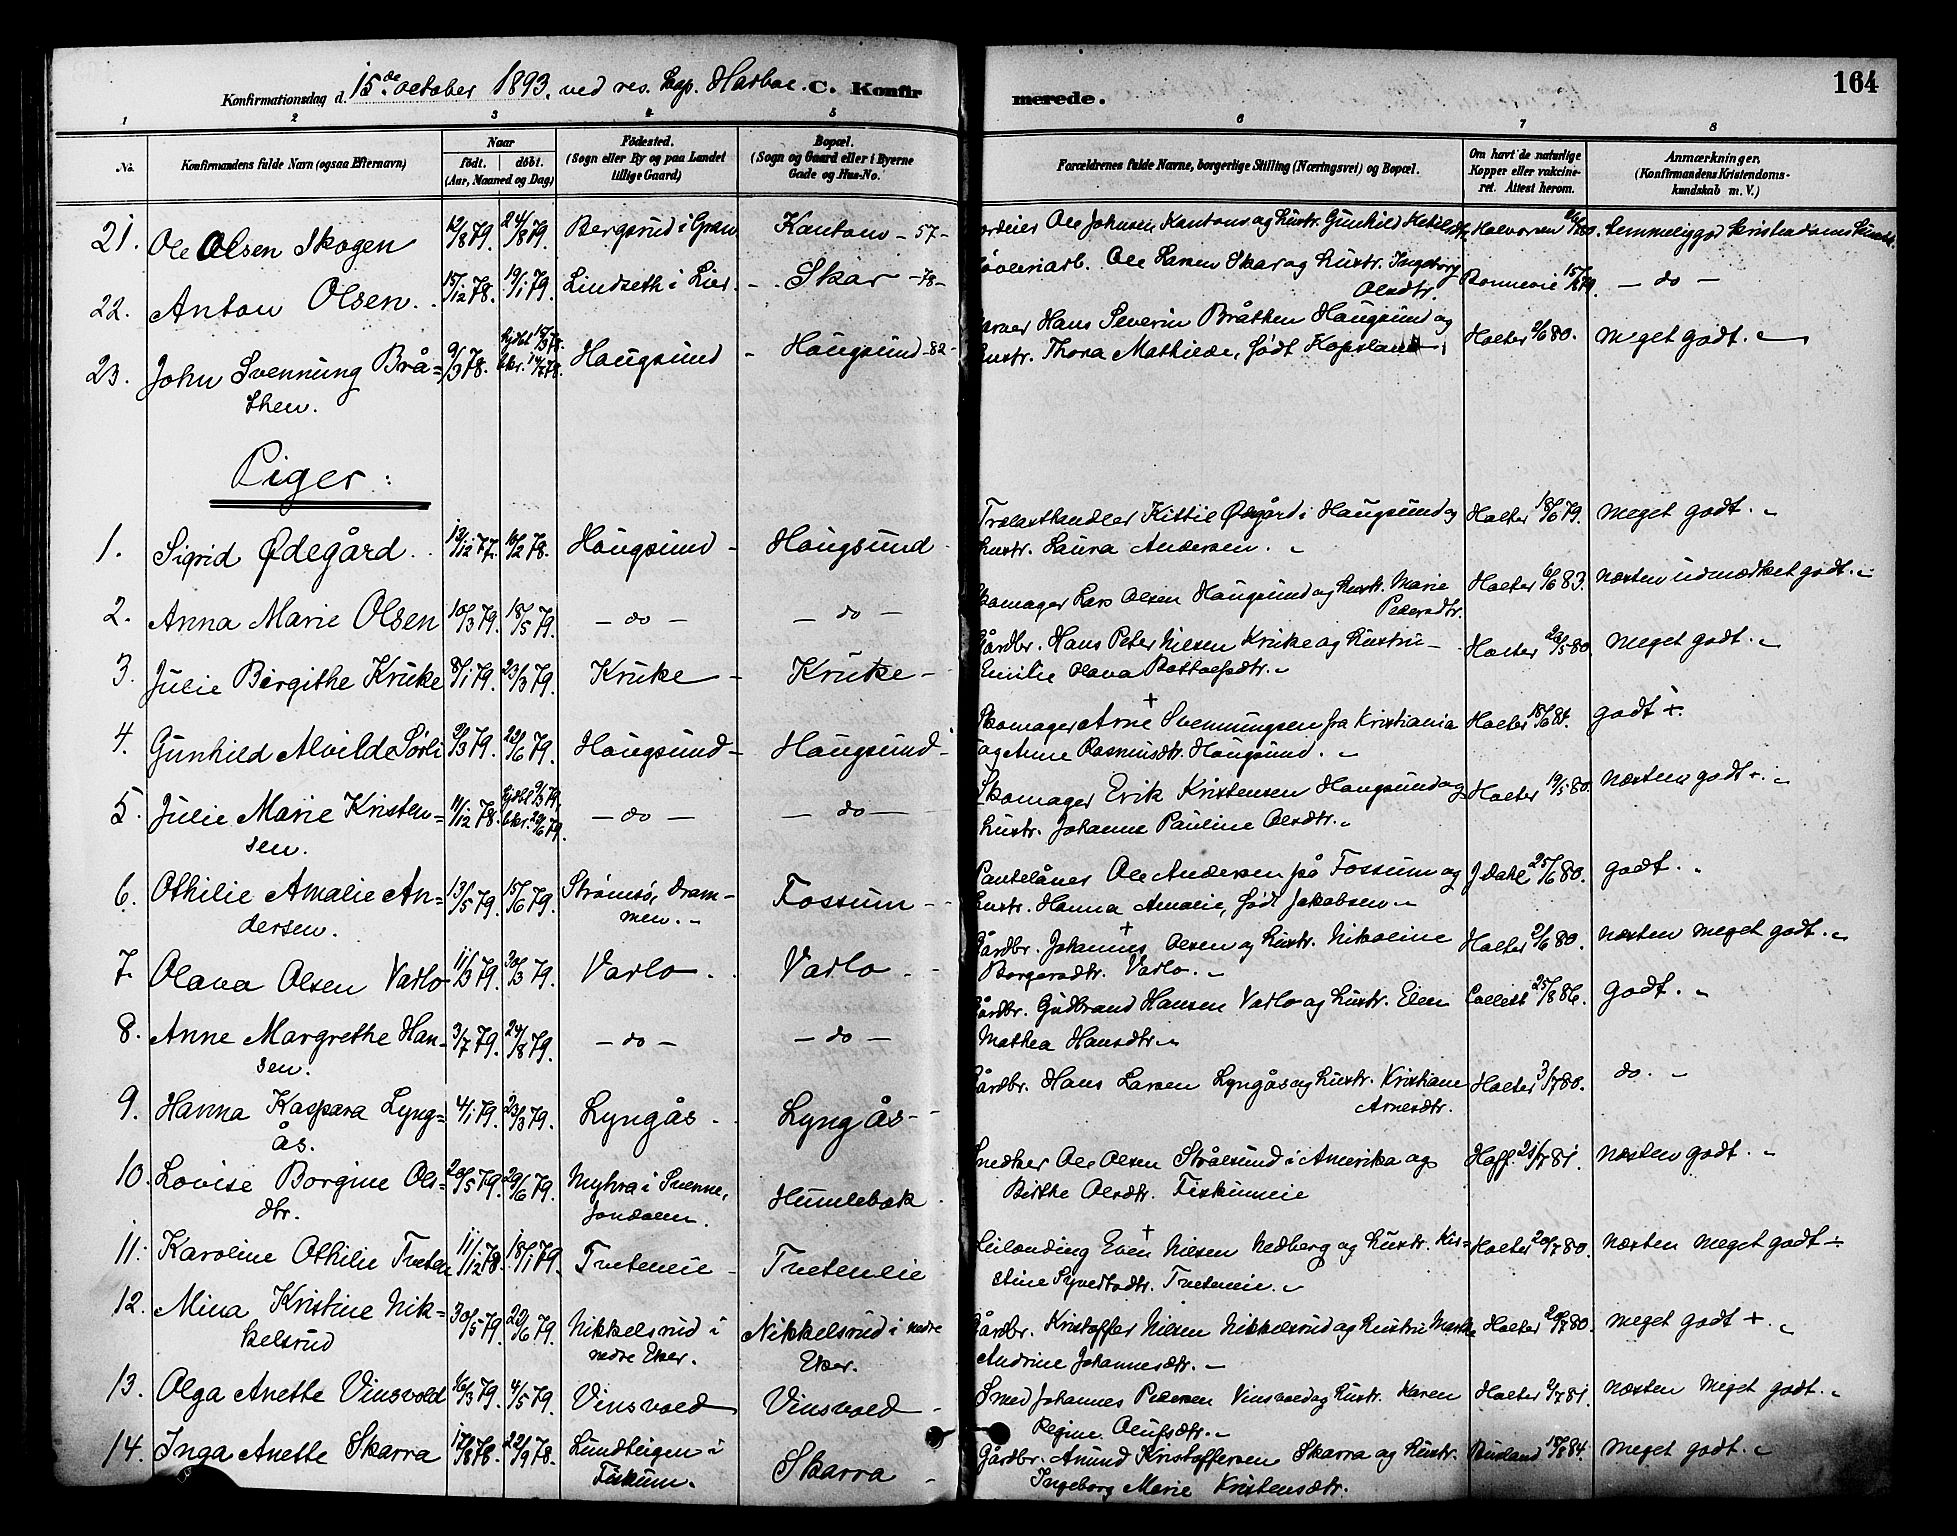 Konfirmationsdag d. 15de october 1893. ved res. kap. C. Konfirmerede. 164
1 2 3 4 5 6 7 8
No. Konfirmandens fulde Navn (ogsaa Efternavn) Naar födt. döbt. (Aar, Maaned og Dag) Födested. (Sogn eller By og paa Landet tillige Gaard) Bopæl. (Sogn og Gaard eller i Byerne Gade og Hus-No. Forældrenes fulde Navne, borgerlige Stilling (Næringsvei) og Bopæl. Om havt de naturlige Kopper eller vaccineret. Attest herom. Anmærkninger. (Konfirmandens Kristendomskundskab m. V.)
21. Ole Olsen Skogen 12/8 79. 24/8 79. Bergsrud i Gran Kantom - 57 - Ole Johnsen Kantons og hustr. Gunhild Halvorsen
22. Anton Olsen. 15/12 78. 19/1 79. Lindseth i Lier. - Skar - 78 - Ole Larsen Skar og hustr. Ingeborg Olsdtr. - do -
23. John Svennung Bråthen. 9/3 78. Hougsund - Hougsund - 82 - Hans Severin Bråthen Hougsund og hustr. Thora Mathilde, født Holter 2/6 80. meget godt.
Piger:
1. Sigrid Ødegård. 19/12 77. 10/2 78. Hougsund - Hougsund Trælasthandler Kittil Ødegård i Hougsund og hustr. Laura Andersen. Holter 18/6 79. meget godt.
2. Anna Marie Olsen 10/3 79. 18/5 79. - do - - do - Skomager Lars Olsen Hougsund og hustr. Marie Pedersdtr. Holter 6/6 83. næsten udmærket godt.
3. Julie Birgithe Kruke 8/1 79. 23/3 79. Kruke - Kruke - Gårdbr. Hans Peter Nilsen Kruke og hustru Emilie Olava Holter 5 80. meget godt.
4. Gunhild Alvilde Sørli 9/3 79. 22/6 79. Hougsund - Hougsund - Skomager Arne + Svennungsen fra Kristiania og Anne Rasmusdtr. Hougsund. Holter 18/6 84. godt +.
5. Julie Marie Kristensen. 11/12 78. - do - - do - Skomager Erik Kristensen Hougsund og hustr. Johanne Pauline Olsdtr. Holter 19/5 80. næsten godt +.
6. Othilie Amalie Andersen. 13/5 79. 15/6 79. Strømsø, Drammen. - Fossum - Ole Andersen på Fossum og hustr. Hanna Amalie, født Jakobsen - J Dahl 25/6 80. godt.
7. Olava Olsen Varlo 11/3 79. 30/3 79. Varlo. Varlo. - Gårdbr. Johannes + Olsen og hustr. Nikoline Borgersdtr. Varlo. Holter 2/6 80. næsten meget godt.
8. Anne Margrethe Hansen. 3/7 79. 24/8 79. - do - - do - Gårdbr. Gudbrand Hansen Varlo og hustr. Elen Mathea Hansdtr. Collett 25/8 86. godt.
9. Hanna Kaspara Lyngås. 4/1 79. 23/3 79. Lyngås. Lyngås - Gårdbr. Hans Larsen Lyngås og hustr. Kristiane Arnesdtr. Holter 3/7 80. do.
10. Lovise Borgine Olsdtr. 20/5 79. 29/6 79. Myhra i Svenne, Jondalen. Humlebæk Snedker Ole Olsen Strålsund i Amerika og Birthe Olsdtr. Fiskumeie Hoff. 21/7 81. næsten godt.
11. Karoline Othilie Tveten 11/12 78. 18/1 79. Tveteneie - Tveteneie Leilænding Even + Nilsen Nedberg og hustr. Kirstine Syvertsdtr. Tveteneie. Holter 20/7 80. næsten meget godt +.
12. Mina Kristine Nikkelsrud 30/5 79. 22/6 79. Nikkelsrud i nedre Eker. Nikkelsrud i nedre Eker. Gårdbr. Kristoffer Nilsen Nikkelsrud og hustru Marthe Andrine Johannesdtr. - Holter 20/7 80. meget godt +.
13. Olga Anette Vinsvold 16/3 79. 4/5 79. Vinsvold Vinsvold - Smed Johannes Pedersen Vinsvold og hustr. Karen Regine Olufsdtr. Holter 2/7 81. næsten meget godt.
14. Inga Anette Skarra 17/8 78. 22/9 78. Lundteigen i Fiskum. Skarra - Gårdbr. Anund Kristoffersen Skarra og hustr. Ingeborg Marie Kristensdtr. Rusland 18/6 84. meget godt.